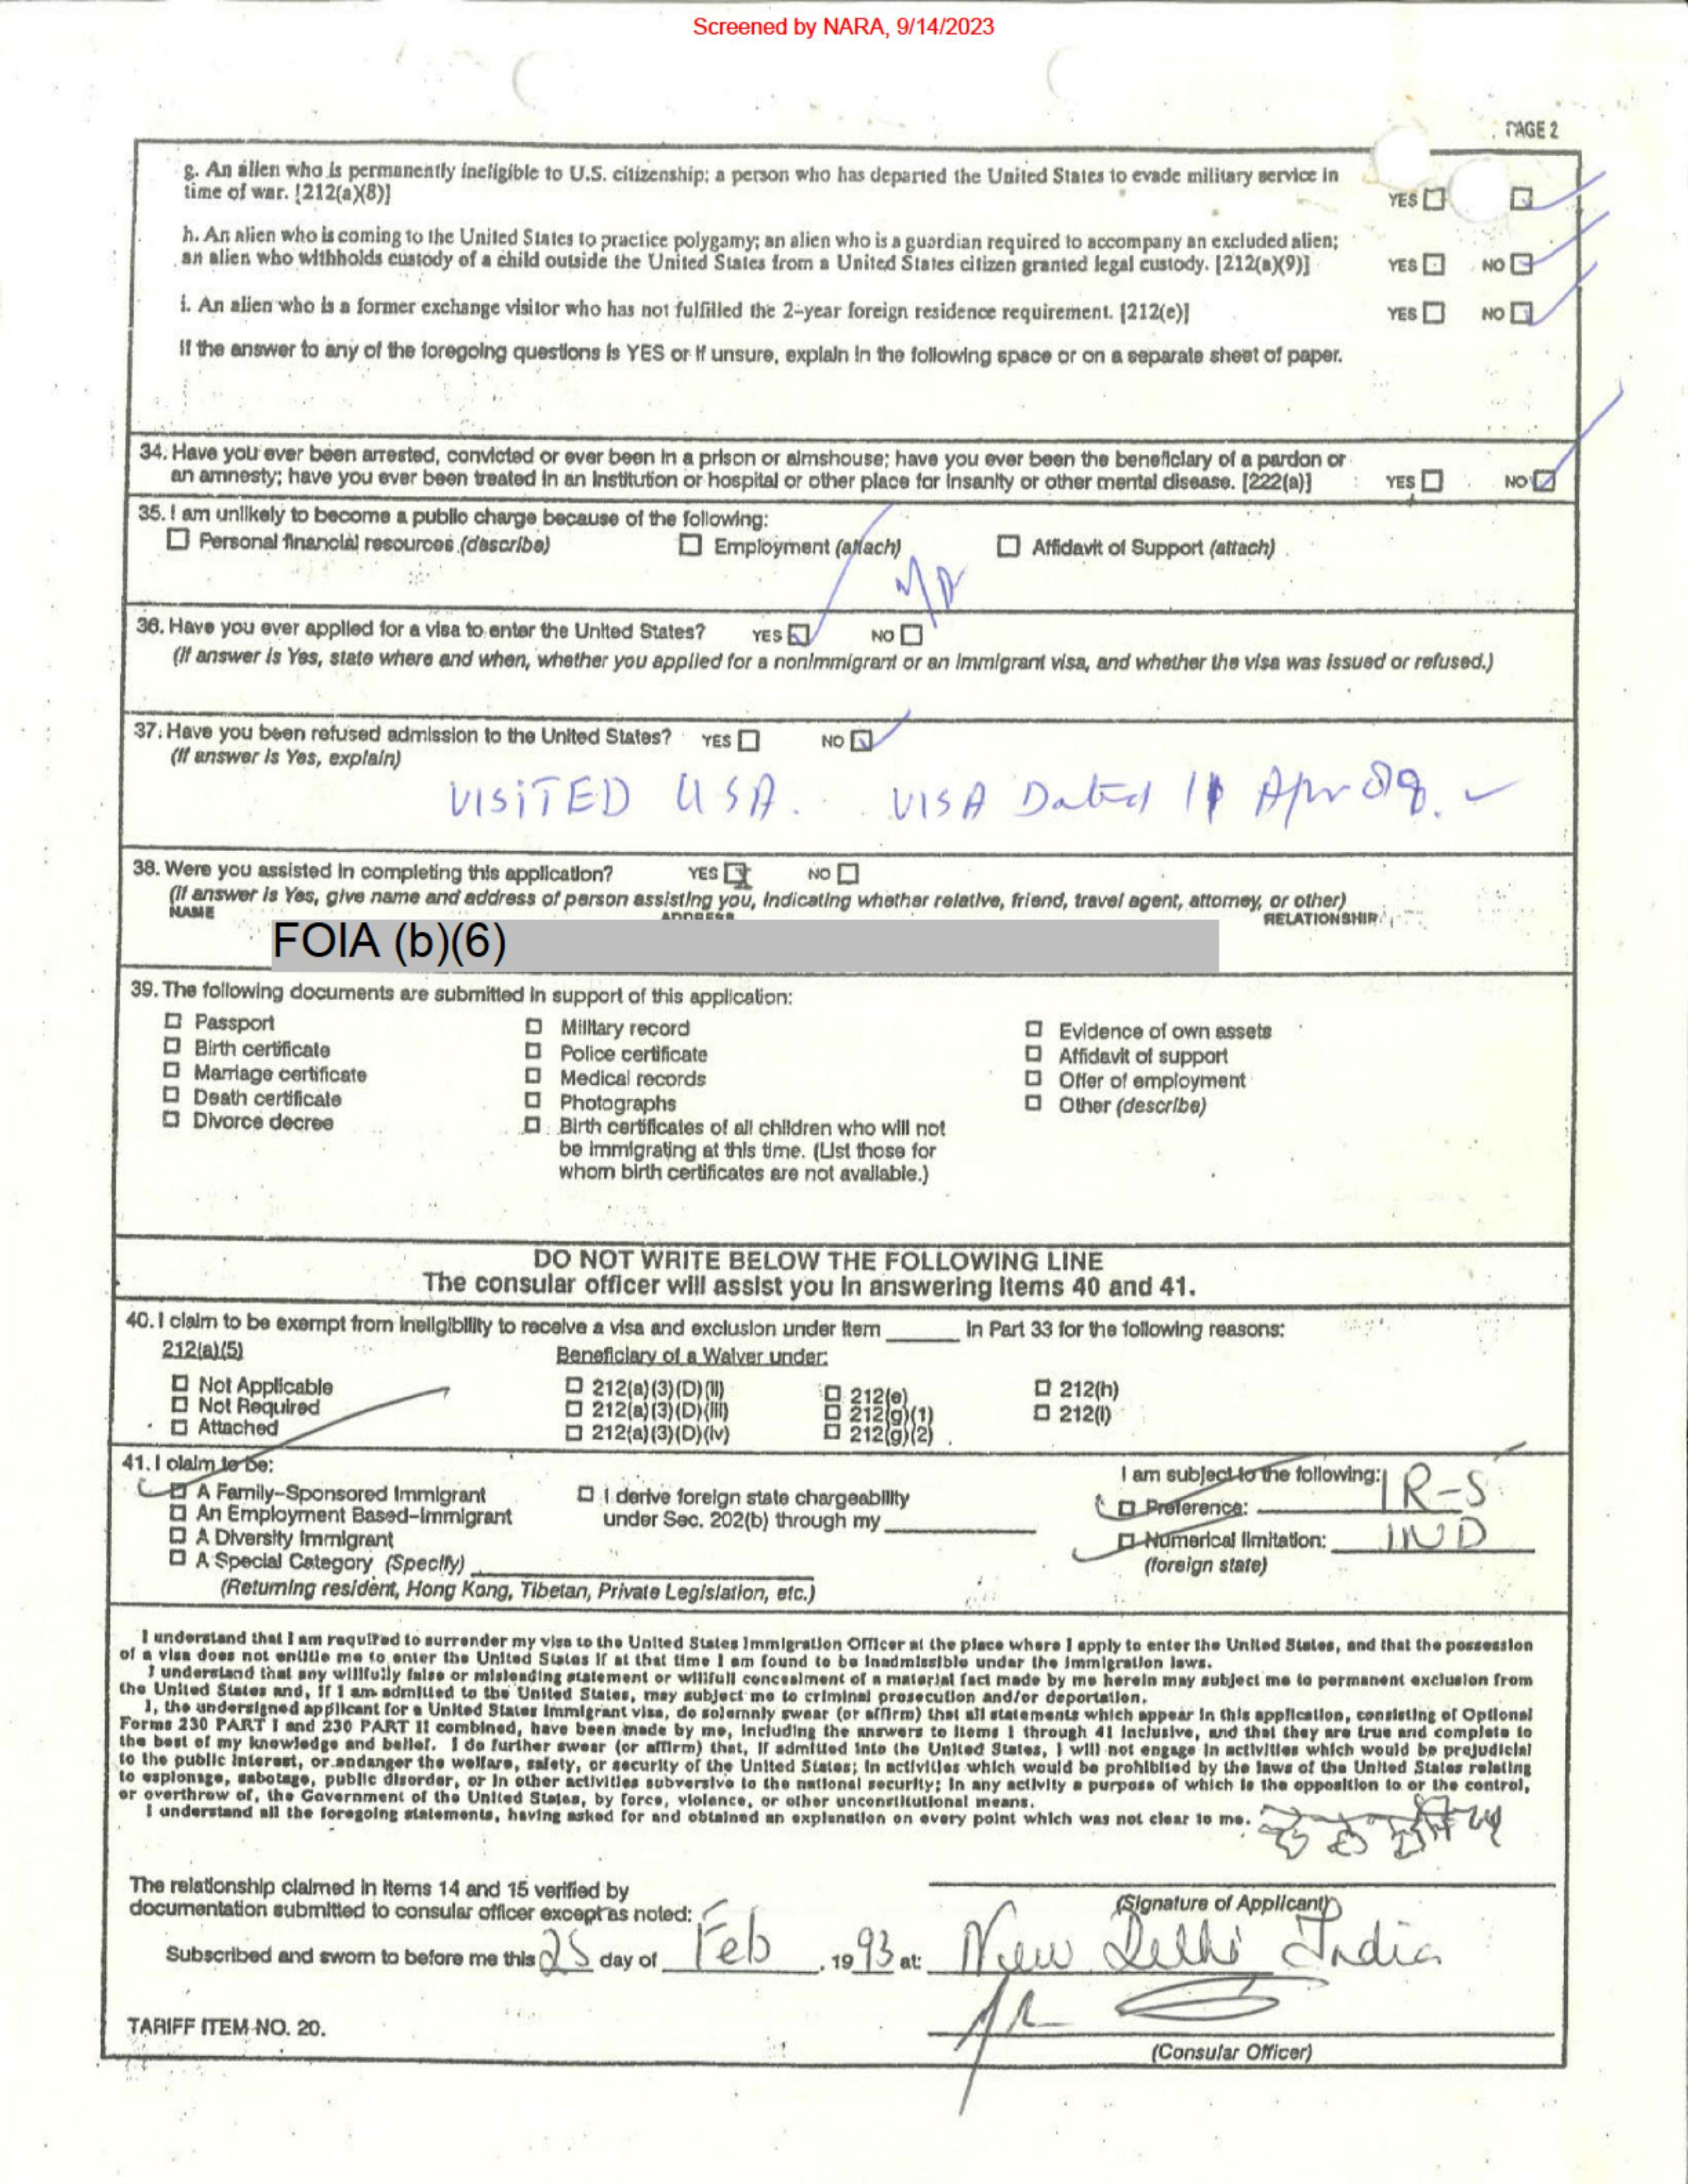 Screened by NARA, 9/14/2023
PAGE 2
g. An alien who is permanently ineligible to U.S. citizenship; a person who has departed the United States to evade military service in
time of war. [212(a)(8)]
YES
h. An alien who is coming to the United States to practice polygamy; an alien who is a guardian required to accompany an excluded alien;
an alien who withholds custody of a child outside the United States from a United States citizen granted legal custody. [212(a)(9)]
YES NO
i. An alien who is a former exchange visitor who has not fulfilled the 2-year foreign residence requirement. [212(e)]
YES NO
If the answer to any of the foregoing questions is YES or if unsure, explain in the following space or on a separate sheet of paper.
34. Have you ever been arrested, convicted or ever been in a prison or almshouse; have you ever been the beneficiary of a pardon or
an amnesty; have you ever been treated in an institution or hospital or other place for insanity or other mental disease. [222(a)]
YES NO
35. I am unlikely to become a public charge because of the following:
Personal financial resources (describe) Employment (attach) Affidavit of Support (attach)
N/A
36. Have you ever applied for a visa to enter the United States? YES NO
(If answer is Yes, state where and when, whether you applied for a nonimmigrant or an immigrant visa, and whether the visa was issued or refused.)
37. Have you been refused admission to the United States? YES NO
(If answer is Yes, explain)
VISITED USA. VISA Dated 11 Apr 89.
38. Were you assisted in completing this application? YES NO
(If answer is Yes, give name and address of person assisting you, indicating whether relative, friend, travel agent, attorney, or other)
NAME ADDRESS RELATIONSHIP
FOIA (b)(6)
39. The following documents are submitted in support of this application:
Passport Military record Evidence of own assets
Birth certificate Police certificate Affidavit of support
Marriage certificate Medical records Offer of employment
Death certificate Photographs Other (describe)
Divorce decree Birth certificates of all children who will not
be immigrating at this time. (List those for
whom birth certificates are not available.)
DO NOT WRITE BELOW THE FOLLOWING LINE
The consular officer will assist you in answering items 40 and 41.
40. I claim to be exempt from ineligibility to receive a visa and exclusion under item ______ in Part 33 for the following reasons:
212(a)(5) Beneficiary of a Waiver under:
Not Applicable 212(a)(3)(D)(ii) 212(e) 212(h)
Not Required 212(a)(3)(D)(iii) 212(g)(1) 212(i)
Attached 212(a)(3)(D)(iv) 212(g)(2)
41. I claim to be: I am subject to the following:
A Family-Sponsored Immigrant I derive foreign state chargeability Preference: IR-5
An Employment Based-Immigrant under Sec. 202(b) through my
A Diversity Immigrant Numerical limitation: IND
A Special Category (Specify) (foreign state)
(Returning resident, Hong Kong, Tibetan, Private Legislation, etc.)
I understand that I am required to surrender my visa to the United States Immigration Officer at the place where I apply to enter the United States, and that the possession
of a visa does not entitle me to enter the United States if at that time I am found to be inadmissible under the immigration laws.
I understand that any willfully false or misleading statement or willfull concealment of a material fact made by me herein may subject me to permanent exclusion from
the United States and, if I am admitted to the United States, may subject me to criminal prosecution and/or deportation.
I, the undersigned applicant for a United States immigrant visa, do solemnly swear (or affirm) that all statements which appear in this application, consisting of Optional
Forms 230 PART I and 230 PART II combined, have been made by me, including the answers to items 1 through 41 inclusive, and that they are true and complete to
the best of my knowledge and belief. I do further swear (or affirm) that, if admitted into the United States, I will not engage in activities which would be prejudicial
to the public interest, or endanger the welfare, safety, or security of the United States; in activities which would be prohibited by the laws of the United States relating
to espionage, sabotage, public disorder, or in other activities subversive to the national security; in any activity a purpose of which is the opposition to or the control,
or overthrow of, the Government of the United States, by force, violence, or other unconstitutional means.
I understand all the foregoing statements, having asked for and obtained an explanation on every point which was not clear to me.
The relationship claimed in items 14 and 15 verified by
documentation submitted to consular officer except as noted:
(Signature of Applicant)
Subscribed and sworn to before me this 25 day of Feb, 1993 at: New Delhi India
TARIFF ITEM NO. 20.
(Consular Officer)